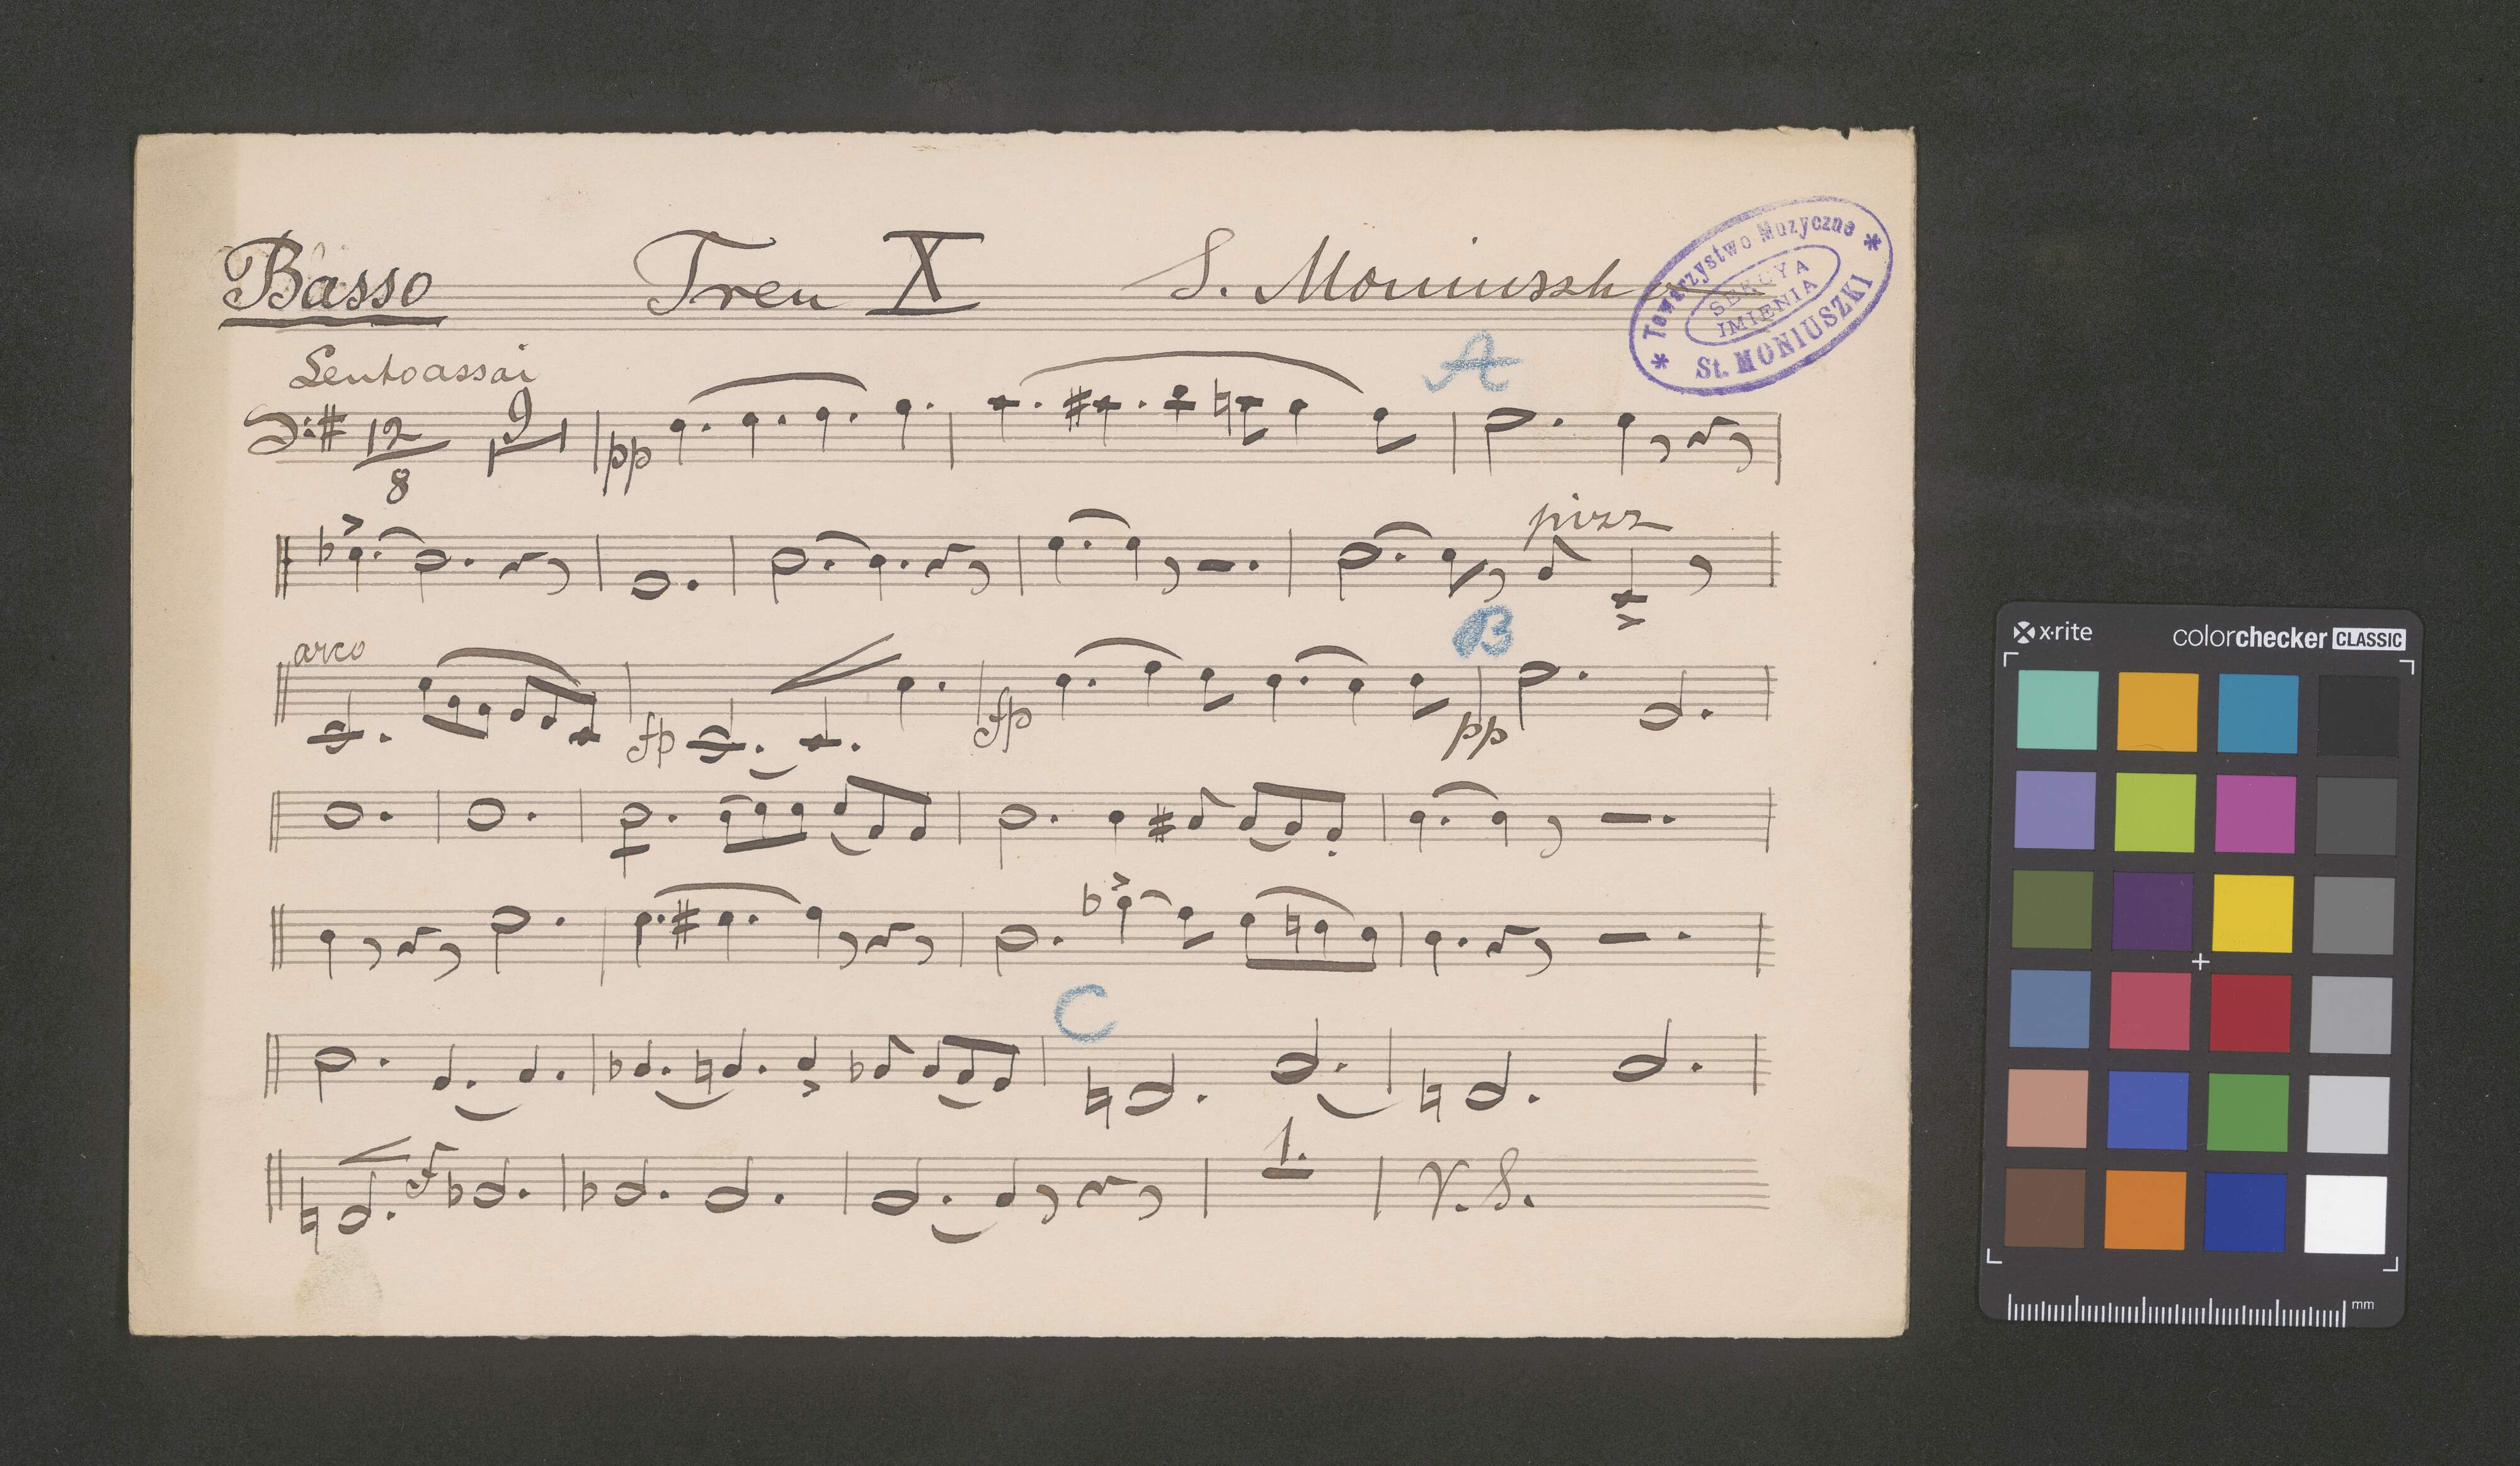 Basso Tren X S. Moniuszko
Towarzystwo Muzyczne
SEKCYA
IMIENIA
St. MONIUSZKI
Lento assai
A
12
8
9
pp
pizz
arco
B
fp
fp
pp
C
f
1.
V. S.
x·rite
colorchecker CLASSIC
mm